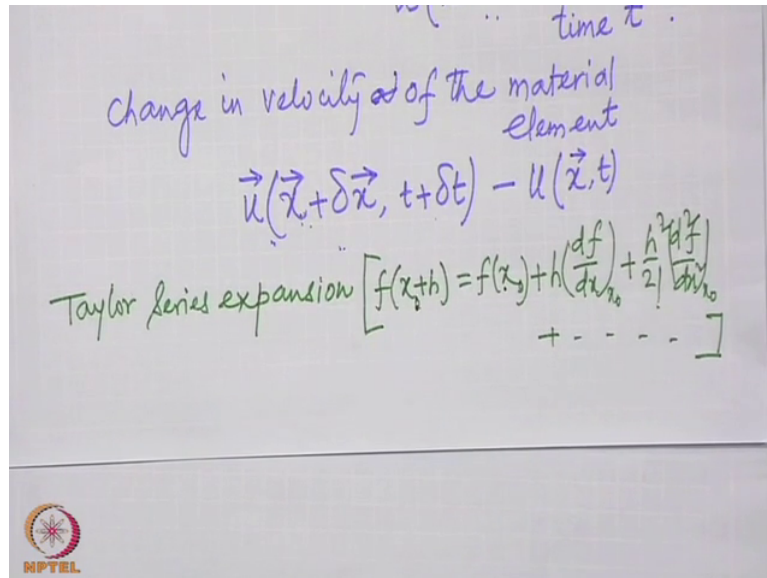 time t.
change in velocity of the material
element
u⃗(x⃗+δx⃗, t+δt) − u(x⃗,t)
Taylor Series expansion [f(x₀+h) = f(x₀) + h(df/dx)ₓ₀ + h²/2! (d²f/dx²)ₓ₀
+ - - - - ]
NPTEL